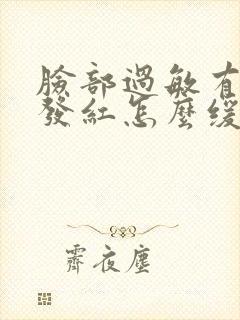 臉部過敏有
發紅怎麼緩
霽夜塵